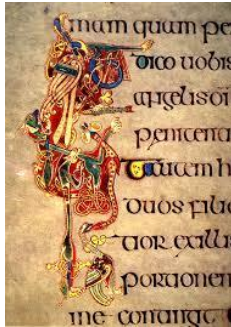 mam quam pe
dico uobis
angelis di
penitenti
autem h
duos filio
tior exillis
portionem
me contingit